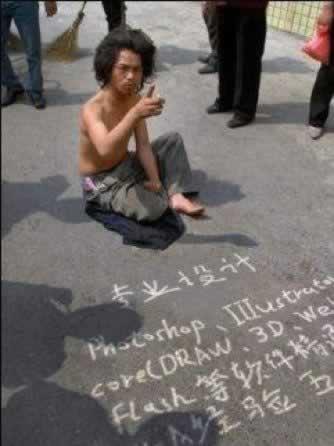 专业设计
Photoshop、Illustrator
corelDRAW、3D、We
Flash等软件精
经验五